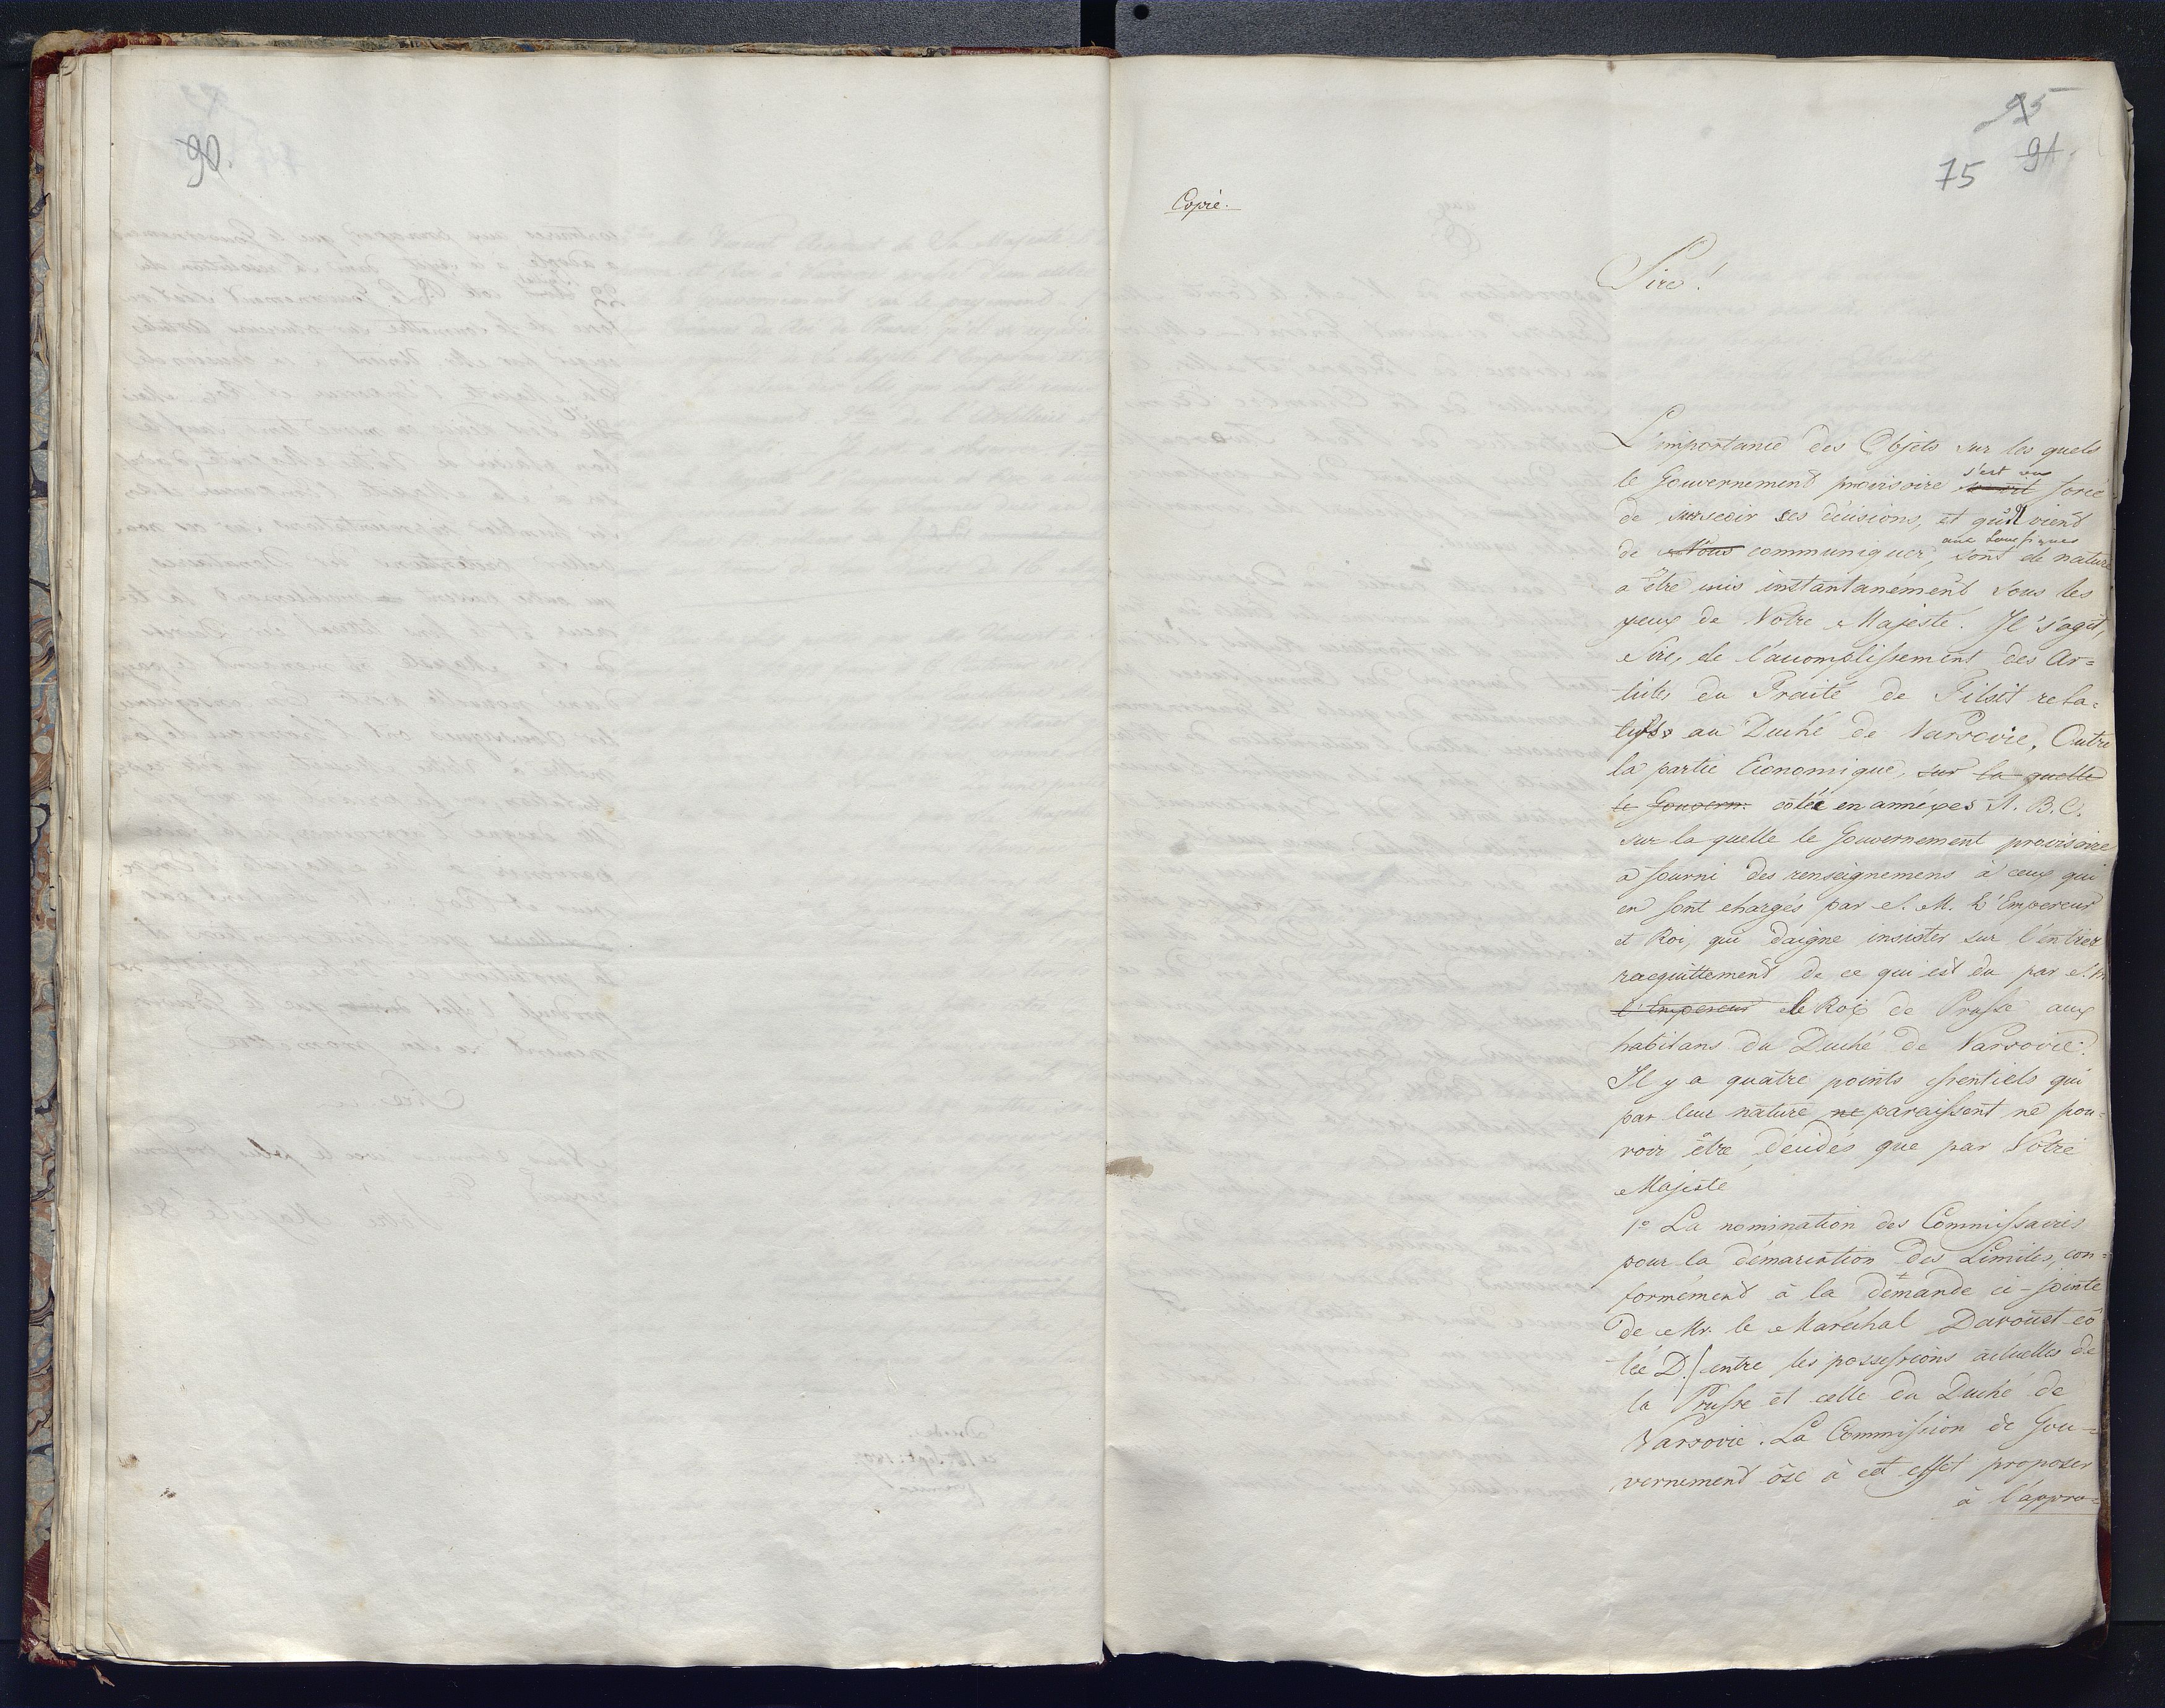 90.
95
75 91.
Copie.
Sire!
L'importance des Objets sur les quels
le Gouvernement provisoire s'est vu forcé
de surseoir ses décisions, et qu'il vient
de Nous communiquer, aux Soussignés sont de nature
a être mis instantanément sous les
yeux de Votre Majesté. Il s'agit,
Sire, de l'accomplissement des Ar=
ticles du Traité de Tilsit rela=
tifs au Duché de Varsovie. Outre
la partie Economique, sur la quelle
le Gouvern: cotée en annéxes A. B. C.
sur la quelle le Gouvernement provisoire
a fourni des renseignemens à ceux qui
en sont chargés par S. M. L'Empereur
et Roi, qui daigne insister sur l'entier
racquittement de ce qui est du par S. M
l'Empereur le Roi de Prusse aux
habitans du Duché de Varsovie.
Il y a quatre points essentiels qui
par leur nature ne paraissent ne pou=
voir être décidés que par Votre
Majesté
1º La nomination des Commissaires
pour la démarcation des Limites, con=
formément à la demande ci-jointe
de Mr. le Maréchal Davoust co
tée D.) entre les possessions actuelles de
la Prusse et celle du Duché de
Varsovie. La Commission de Gou=
vernement ôse à cet effet proposer
à l'appro=